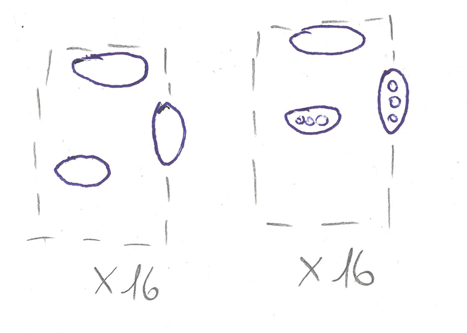 X16
X16